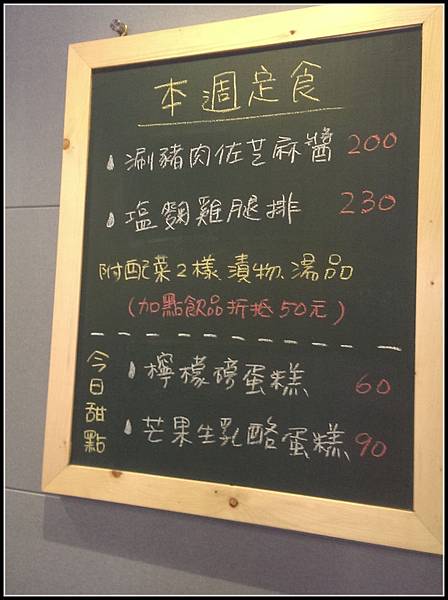 本週定食
涮豬肉佐芝麻醬 200
塩麴雞腿排 230
附配菜2樣、漬物、湯品
(加點飲品折抵50元)
今日甜點
檸檬磅蛋糕 60
芒果生乳酪蛋糕 90